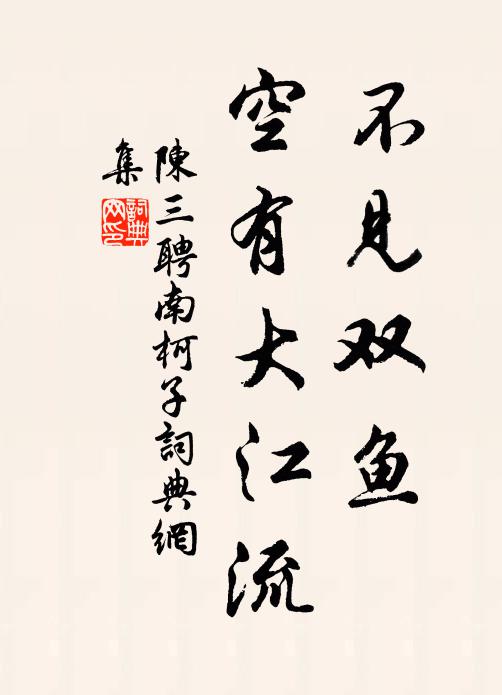 不见双鱼
空有大江流
陳三聘南柯子詞典網
集
詞典
网印